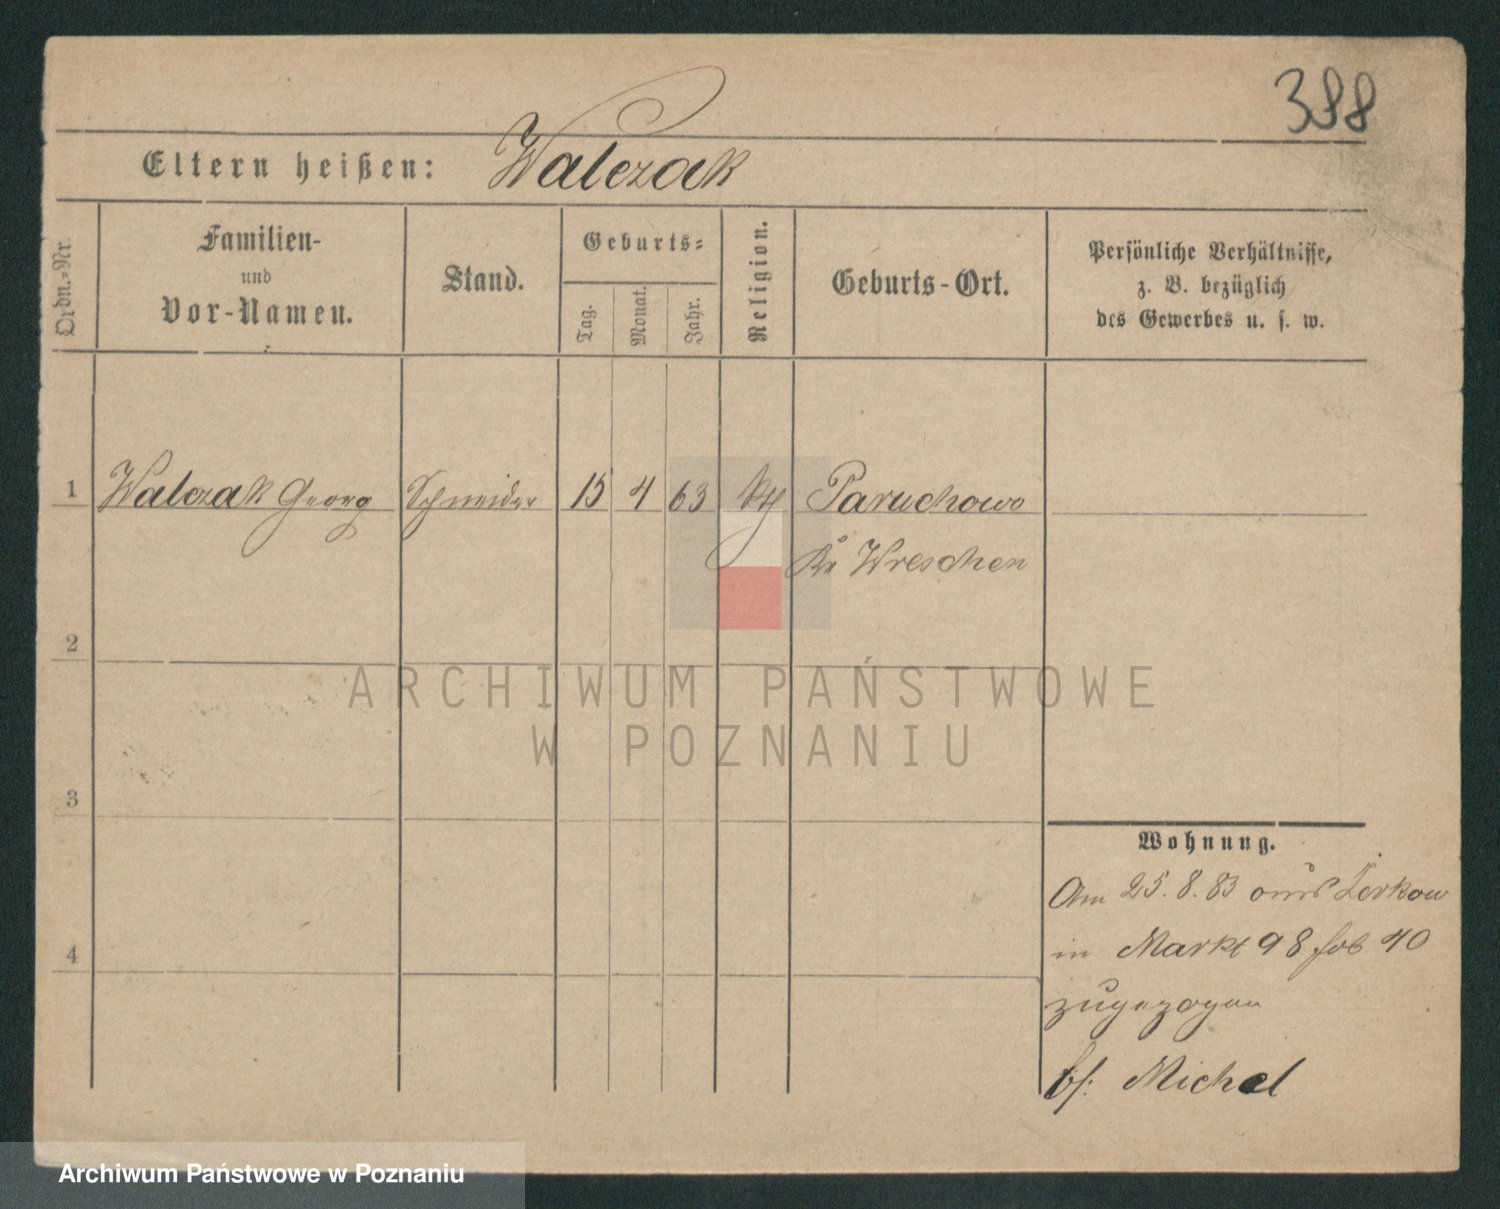 388
Eltern heißen: Walczak
Ordn.-Nr.
Familien-
und
Vor-Namen.
Stand.
Geburts-
Tag.
Monat.
Jahr.
Religion.
Geburts-Ort.
Persönliche Verhältnisse,
z. B. bezüglich
des Gewerbes u. s. w.
1 Walczak Georg Schneider 15 4 63 Paruchowo
Kr Wreschen
2
3
4
ARCHIWUM PAŃSTWOWE
W POZNANIU
Wohnung.
Am 25. 8. 83 aus Zerkow
in Markt 98 40
zugezogen
Michel
Archiwum Państwowe w Poznaniu